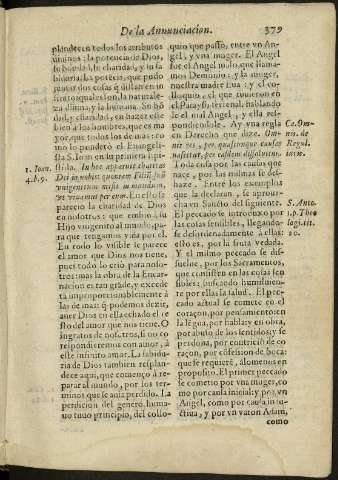 De la Annunciacion. 379
plandecen todos los atributos
diuinos: la potencia de Dios,
su bõdad, su charidad, y su sa
biduria. La potẽcia, que pudo
juntar dos cosas tã distantes in
la natura-
leza diuina, y la humana. Su bõ
dad, y charidad, en hazer este
bien a los hombres, que es ma
yor, que todos los demas: co-
mo lo pondetò el Euangelista
S. Ioan en la primera epi-
stola. In hoc apparuit charitas
Dei in nobis quoniam Filiũ suũ
vnigenitum misit in mundum,
vt viuamus per eum. En esto se
parecio la charidad de Dios
en nosotros: que embiò a su
Hijo vnigenito al mundo, pa-
ra que viuamos por el.
En todo lo visible se parece
el amor que Dios nos tiene,
pues todo lo criò para noso-
tros: mas la obra de la Encar-
nacion es tan grãde, y excede
tã improporcionablemente à
las de mas, q̃ podemos dezir,
que Dios en ella echado el re
sto del amor que nos tiene. O
ingratos de nosotros, si no cor
respondieremos con amor, à
este infinito amor. La sabidu-
ria de Dios tambien resplan-
dece aqui, que começò à re-
parar al mundo, por los ter-
minos que se auia perdido. La
perdicion del genero huma-
no tuuo principio, del collo-
1. Ioan.
4. b. 9.
quio que passò, entre vn An-
gel, y vna muger. El Angel
fue el Angel malo, que llama-
mos Demonio: y la muger,
nuestra madre Eua: y el co-
lloquio, el que tuuieron en
el Parayso, terrenal, hablando
le el mal Angel, y ella res-
pondiendole. Ay vna regla
en Derecho que dize. Om-
nis res, per quascunque causas
nascitur, per easdem dissoluitur.
A toda cosa por las causas que
nace, por las mismas se desf-
haze. Entre los exemplos
que la declaran, se aproue-
cha vn Sancto del siguiente.
El peccado se introduxo por
las cosas sensibles, llegando-
se desordenadamente à ellas:
esto es, por la fruta vedada.
Y el mismo peccado se dis-
suelue, por los Sacramentos,
que consisten en las cosas sen
sibles; buscando humilmen-
te por ellas la salud. El pec-
cado actual se comete en el
coraçon, por pensamiento: en
la légua, por hablar; y en obra,
por abuso de los sentidos: y se
perdona, por contriciõ de co
raçon, por cõfesiõn de boca:
que se requiere, à lomenos en
proposito. El primer peccado
se cometio por vna muger, co
mo por causa inicial: y por vn
Angel, como por causa in du-
ctiua, y por vn varon Adam,
como
Ca. Om-
nis. de
Regul.
iuris.
S. Anto.
1. p. Theo
logi. tit.
20.